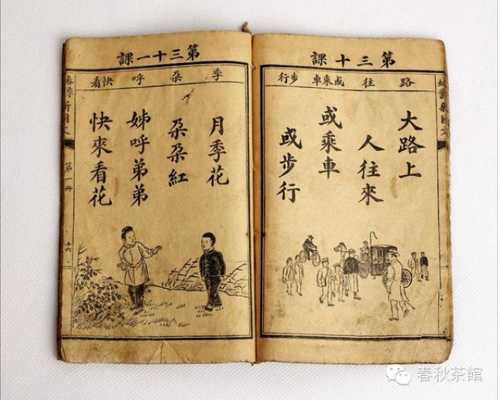 第三十課
路 往 或乘車 步行
大路上
人往來
或乘車
或步行
第三十一課
季 朵 呼 快看
月季花
朵朵紅
姊呼弟弟
快來看花
第一冊
春秋茶館